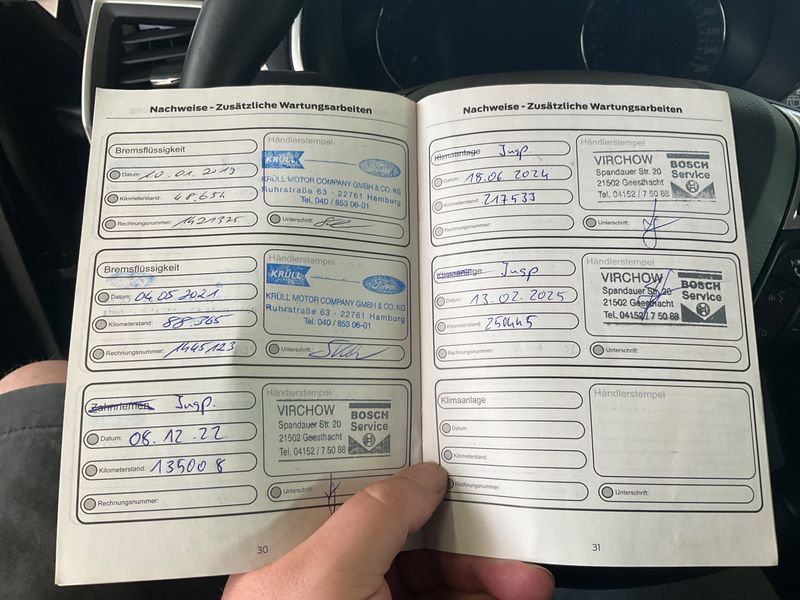 Nachweise - Zusätzliche Wartungsarbeiten
Bremsflüssigkeit
Datum: 10.01.2019
Kilometerstand: 48.654
Rechnungsnummer: 1421325
Händlerstempel
KRÜLL
Ford
KRÜLL MOTOR COMPANY GMBH & CO. KG
Ruhrstraße 63 - 22761 Hamburg
Tel. 040 / 853 06-01
Unterschrift:
Bremsflüssigkeit
Datum: 04.05.2021
Kilometerstand: 88.565
Rechnungsnummer: 1445123
Händlerstempel
KRÜLL
Ford
KRÜLL MOTOR COMPANY GMBH & CO. KG
Ruhrstraße 63 - 22761 Hamburg
Tel. 040 / 853 06-01
Unterschrift:
Zahnriemen Insp.
Datum: 08.12.22
Kilometerstand: 135008
Rechnungsnummer:
Händlerstempel
VIRCHOW
Spandauer Str. 20
21502 Geesthacht
Tel. 04152 / 7 50 88
BOSCH
Service
Unterschrift:
30
Nachweise - Zusätzliche Wartungsarbeiten
Klimaanlage Insp.
Datum: 18.06.2024
Kilometerstand: 217533
Rechnungsnummer:
Händlerstempel
VIRCHOW
Spandauer Str. 20
21502 Geesthacht
Tel. 04152 / 7 50 88
BOSCH
Service
Unterschrift:
Klimaanlage Insp.
Datum: 13.02.2025
Kilometerstand:
Rechnungsnummer:
Händlerstempel
VIRCHOW
Spandauer Str. 20
21502 Geesthacht
Tel. 04152 / 7 50 88
BOSCH
Service
Unterschrift:
Klimaanlage
Datum:
Kilometerstand:
Rechnungsnummer:
Händlerstempel
Unterschrift:
31